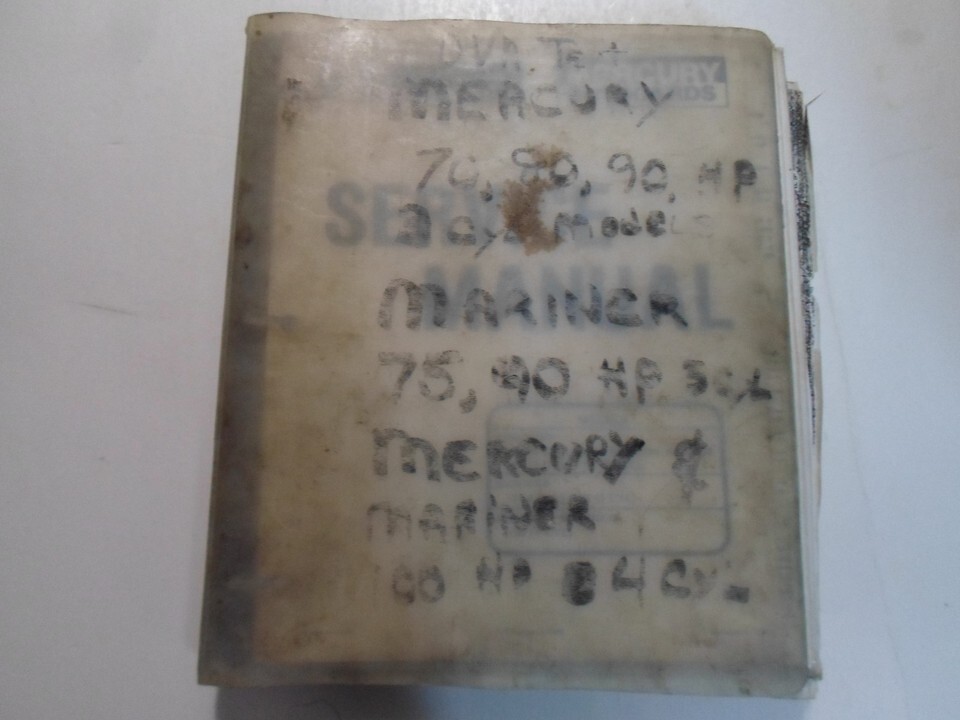 DVA Test
MERCURY
MERCURY
70, 80, 90, HP
SERVICE
3 Cyl Models
MANUAL
MARINER
75, 90 HP 3 CyL
MERCURY &
MARINER
100 HP 4 Cyl